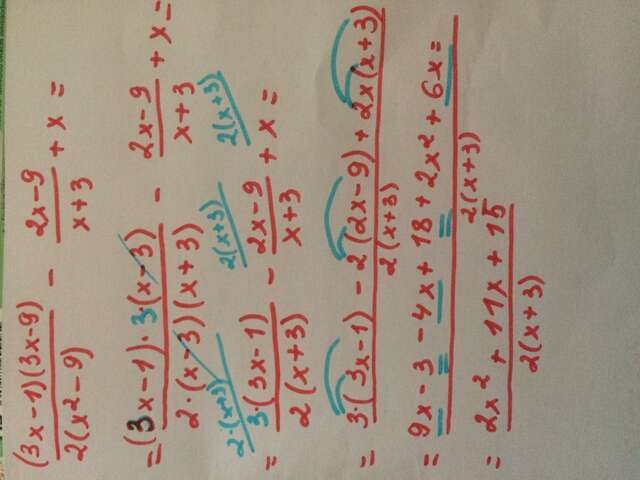 (3x-1)(3x-9)/2(x²-9) - 2x-9/x+3 + x =
= (3x-1)·3·(x-3)/2·(x-3)(x+3) - 2x-9/x+3 + x =
2·(x+3) 2(x+3) 2(x+3)
= 3·(3x-1)/2(x+3) - 2x-9/x+3 + x =
= 3·(3x-1) - 2(2x-9) + 2x(x+3)/2(x+3)
= 9x - 3 - 4x + 18 + 2x² + 6x =/2(x+3)
= 2x² + 11x + 15/2(x+3)